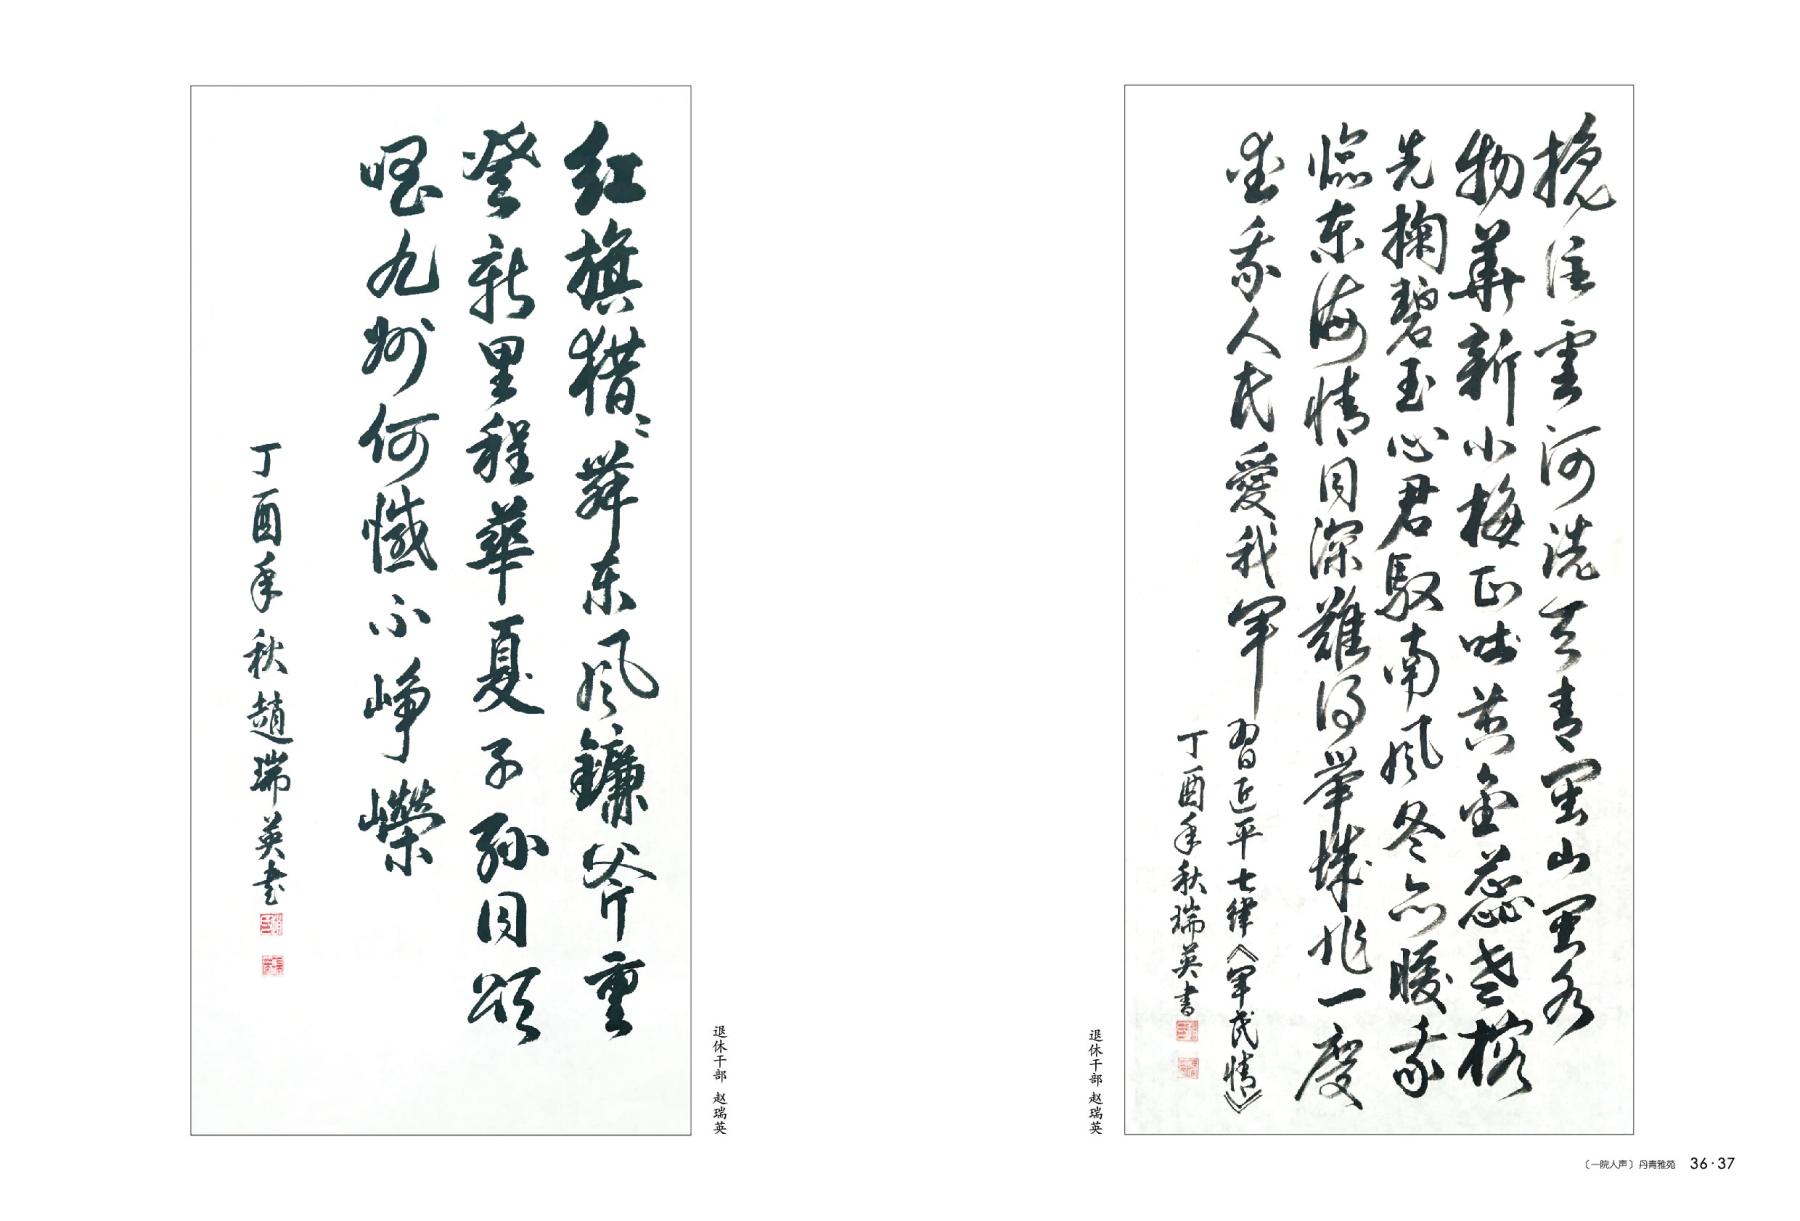 红旗猎猎舞东风镰斧重
登新里程華夏子孙同颂
唱九州何懺不峥嵘
丁酉年秋趙瑞英书
退休干部 赵瑞英
挽住雲河洗天青閩山閩水
物華新小梅正吐黄金蕊老榕
先掬碧玉心君馭南風冬亦暖我
临东海情同深難得举城作一慶
爱我人民愛我軍 习近平七律《军民情》
丁酉年秋瑞英書
退休干部 赵瑞英
〔一院人声〕丹青雅苑 36·37